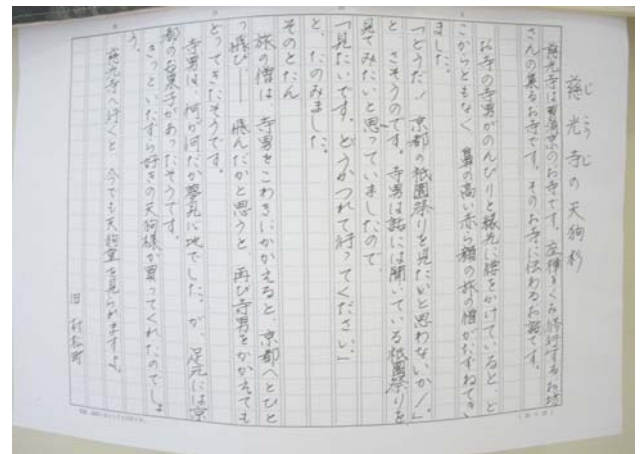 慈光寺の天狗杉
じこうじ
慈光寺は曹洞宗のお寺です。座禅をくみ修行するお坊
さんの居るお寺です。そのお寺に伝わるお話です。
お寺の寺男がのんびりと縁先に腰をかけていると、ど
こからともなく、鼻の高い赤ら顔の旅の僧がたずねてき
ました。
「どうだ!京都の祇園祭りを見たいと思わないか!」
と、さそうのです。寺男は話には聞いている祇園祭りを
見てみたいと思っていましたので
「見たいです。どうかつれて行ってください」
と、たのみました。
そのとたん
旅の僧は、寺男をこわきにかかえると、京都へとひと
っ飛び――飛んだかと思うと、再び寺男をかかえても
どってきたそうです。
寺男は、何が何だか夢見心地でした。が、足元には京
都のお菓子があったそうです。
きっといたずら好きの天狗様が買ってくれたのでしょ
う。
慈光寺へ行くと、今でも天狗堂を見られますよ。
旧村松町